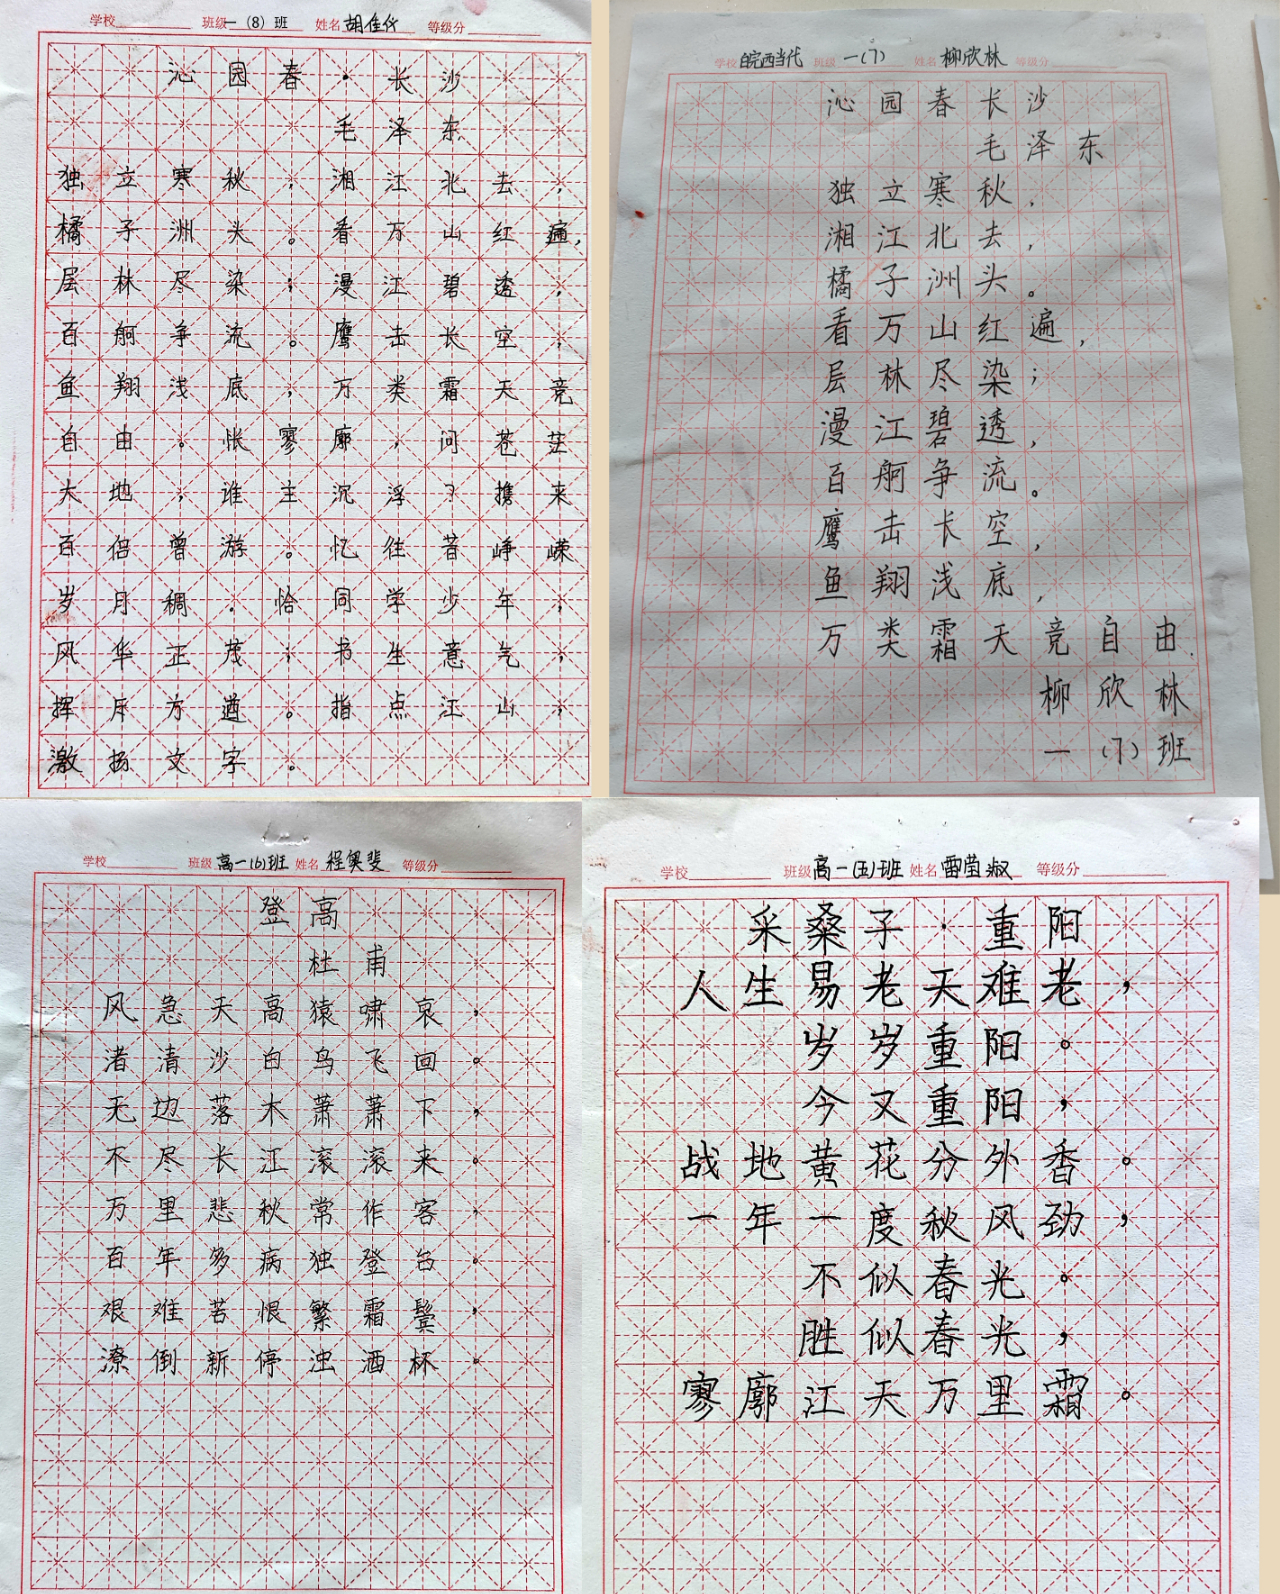 学校 班级 一（8）班 姓名 胡佳代 等级分
沁园春·长沙
毛泽东
独立寒秋，湘江北去，
橘子洲头。看万山红遍，
层林尽染；漫江碧透，
百舸争流。鹰击长空，
鱼翔浅底，万类霜天竞
自由。怅寥廓，问苍茫
大地，谁主沉浮？携来
百侣曾游。忆往昔峥嵘
岁月稠。恰同学少年，
风华正茂；书生意气，
挥斥方遒。指点江山，
激扬文字。
学校 皖西当代 班级 一（7） 姓名 柳欣林 等级分
沁园春长沙
毛泽东
独立寒秋，
湘江北去，
橘子洲头。
看万山红遍，
层林尽染；
漫江碧透，
百舸争流。
鹰击长空，
鱼翔浅底，
万类霜天竞自由.
柳欣林
一（7）班
学校 班级 高一（6）班 姓名 程奥斐 等级分
登高
杜甫
风急天高猿啸哀，
渚清沙白鸟飞回。
无边落木萧萧下，
不尽长江滚滚来。
万里悲秋常作客，
百年多病独登台。
艰难苦恨繁霜鬓，
潦倒新停浊酒杯。
学校 班级 高一（五）班 姓名 雷莹淑 等级分
采桑子·重阳
人生易老天难老，
岁岁重阳。
今又重阳，
战地黄花分外香。
一年一度秋风劲，
不似春光。
胜似春光，
寥廓江天万里霜。